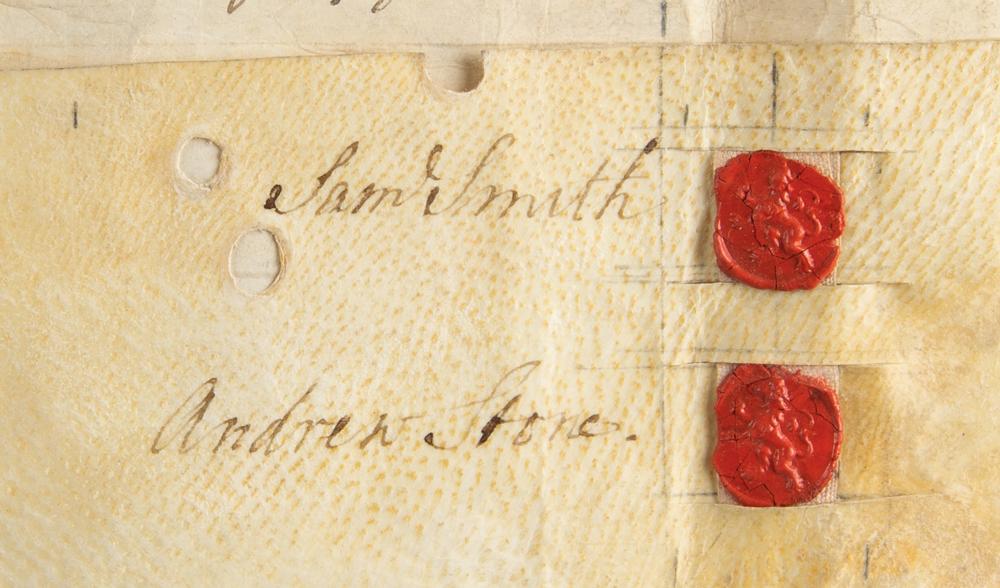 Saml Smith
Andrew Stone.